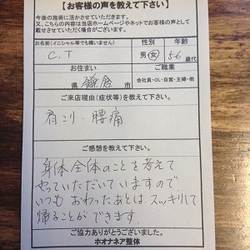 【お客様の声を教えて下さい】
今後の施術に活かさせていただきます。
又、こちらの内容は当店ホームページやネットでお客様の声として
載せさせていただく場合がございます。
お名前(イニシャル等でも構いません) 性別 年齢
C.T 男・女 56歳
お住まい ご職業
県 鎌倉 市 会社員・OL・自営・主婦・他
ご来店理由(症状等)を教えて下さい。
肩こり・腰痛
ご感想を教えて下さい。
身体全体のことを考えて
やっていただいていますので
いつも おわったあとは スッキリして
帰ることができます
ご協力ありがとうございました。
ホオナネア整体